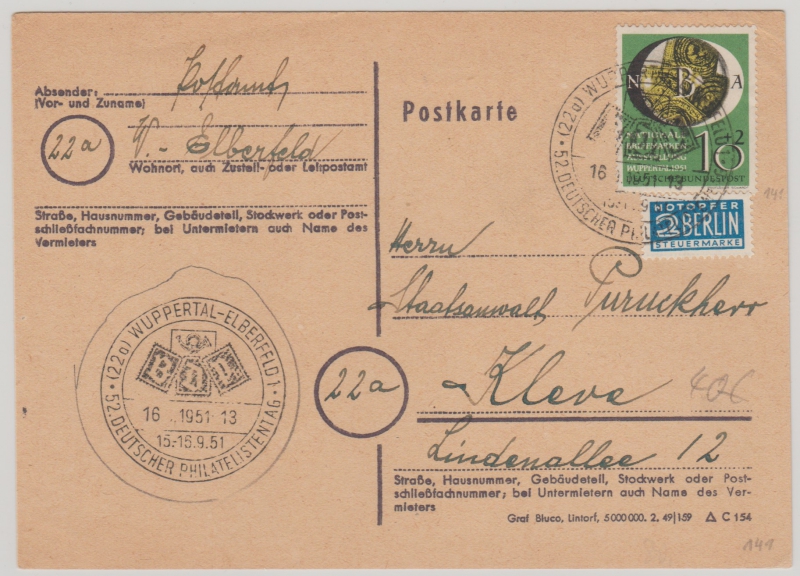 Absender: Postamt
(Vor- und Zuname)
22a W.- Elberfeld
Wohnort, auch Zustell- oder Leitpostamt
Straße, Hausnummer, Gebäudeteil, Stockwerk oder Post-
schließfachnummer; bei Untermietern auch Name des
Vermieters
(22a) WUPPERTAL-ELBERFELD 1
16 1951-13
15.-16.9.51
• 52. DEUTSCHER PHILATELISTENTAG •
Postkarte
N A
NATIONALE
BRIEFMARKEN
AUSSTELLUNG
WUPPERTAL 1951
10+2
DEUTSCHE BUNDESPOST
(22a) WUPPER
16 1951-13
• 52. DEUTSCHER PHIL
NOTOPFER
2 BERLIN
STEUERMARKE
141
Herrn
Staatsanwalt Puruckherr
22a Kleve
Lindenallee 12
Straße, Hausnummer, Gebäudeteil, Stockwerk oder Post-
schließfachnummer; bei Untermietern auch Name des Ver-
mieters
Graf Bluco, Lintorf, 5 000 000. 2. 49|159 Δ C 154
141